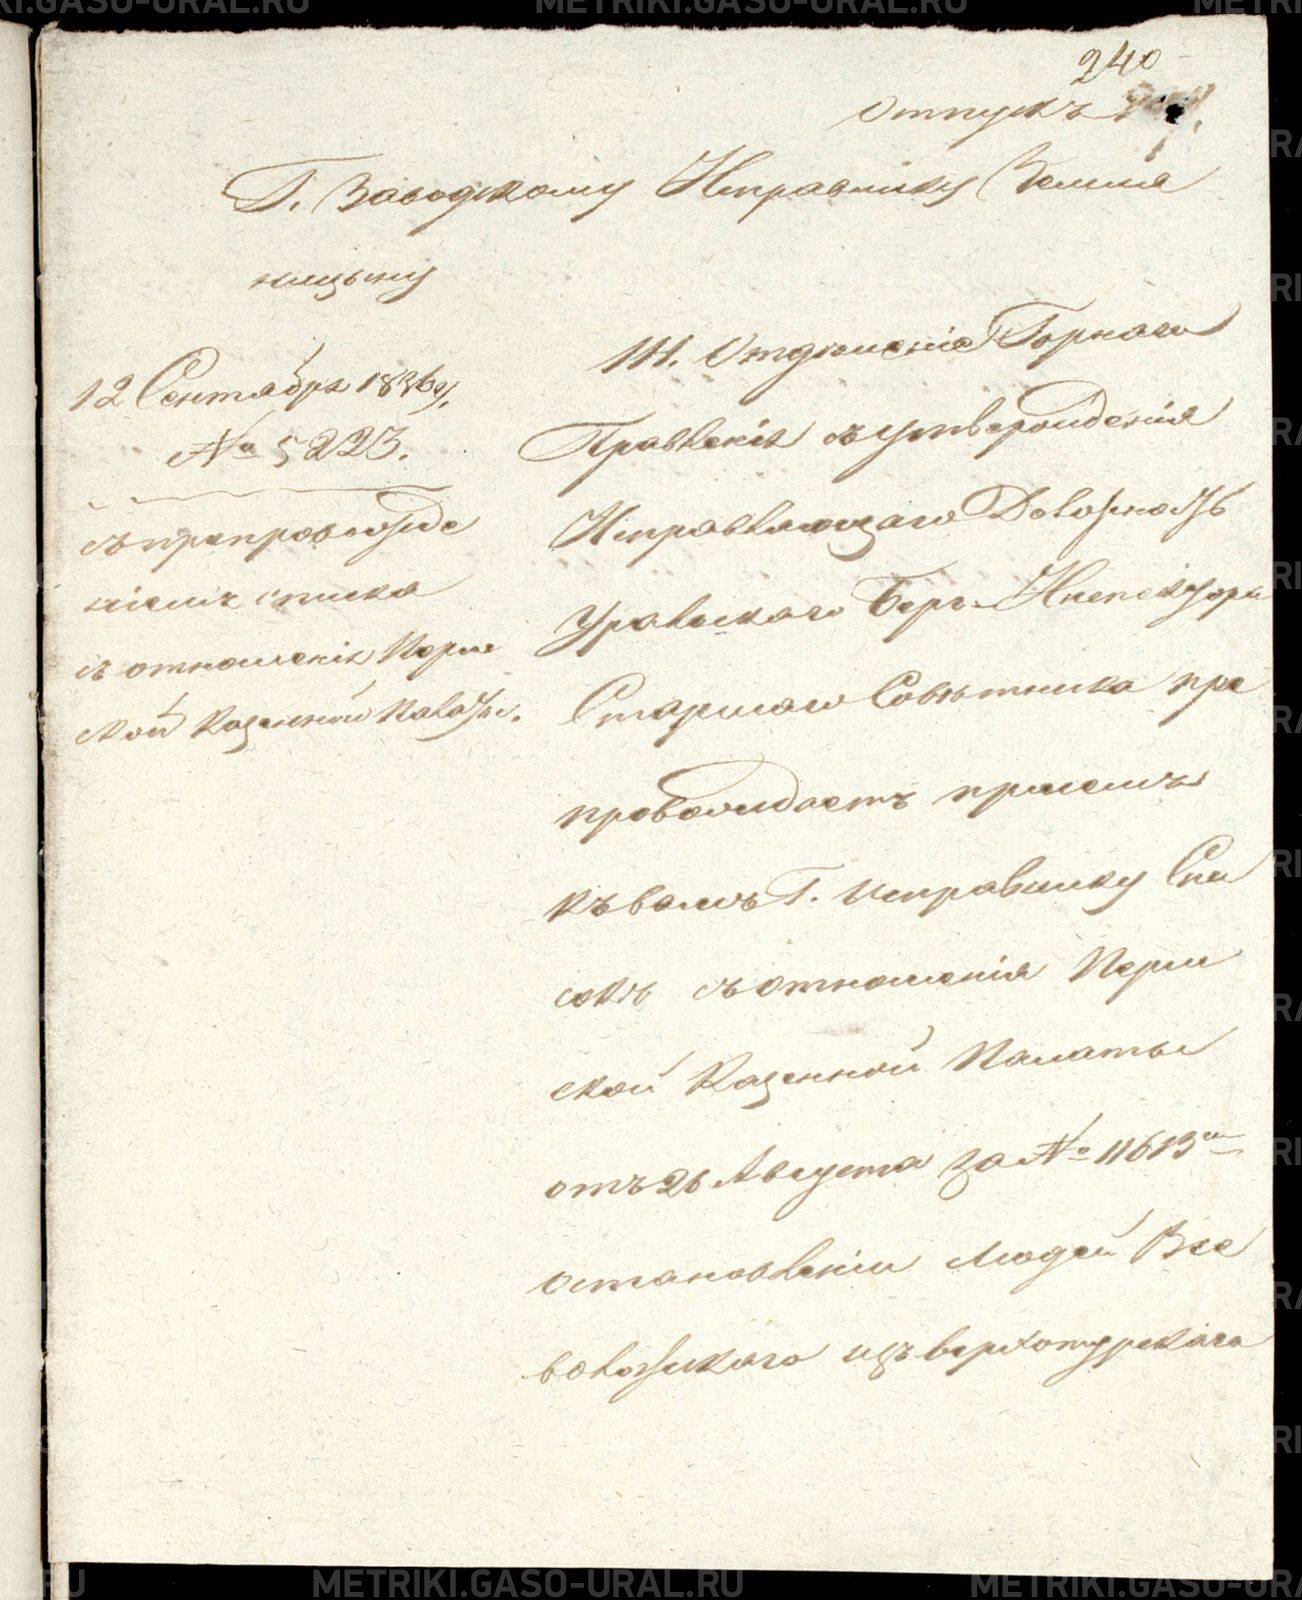 240
Отпускъ
Г. Заводскому Исправнику Земля
ницыну
12 Сентября 1836 г.
№ 5223.
съ препровожде
ніемъ списка
съ отношенія Перм
ской Казенной Палаты.
III. Отдѣленіе Горнаго
Правленія съ утвержденія
Исправляющаго Должность
Уральскаго Берг-Инспектора
Старшаго Совѣтника пре
провождаетъ при семъ
къ вамъ Г. Исправнику Спи
сокъ съ отношенія Перм
ской Казенной Палаты
отъ 26 Августа за № 11613
остановленіи людей Все
воложскаго изъ верхотурскаго
METRIKI.GASO-URAL.RU